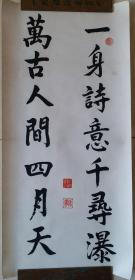 一身詩意千尋瀑
萬古人間四月天